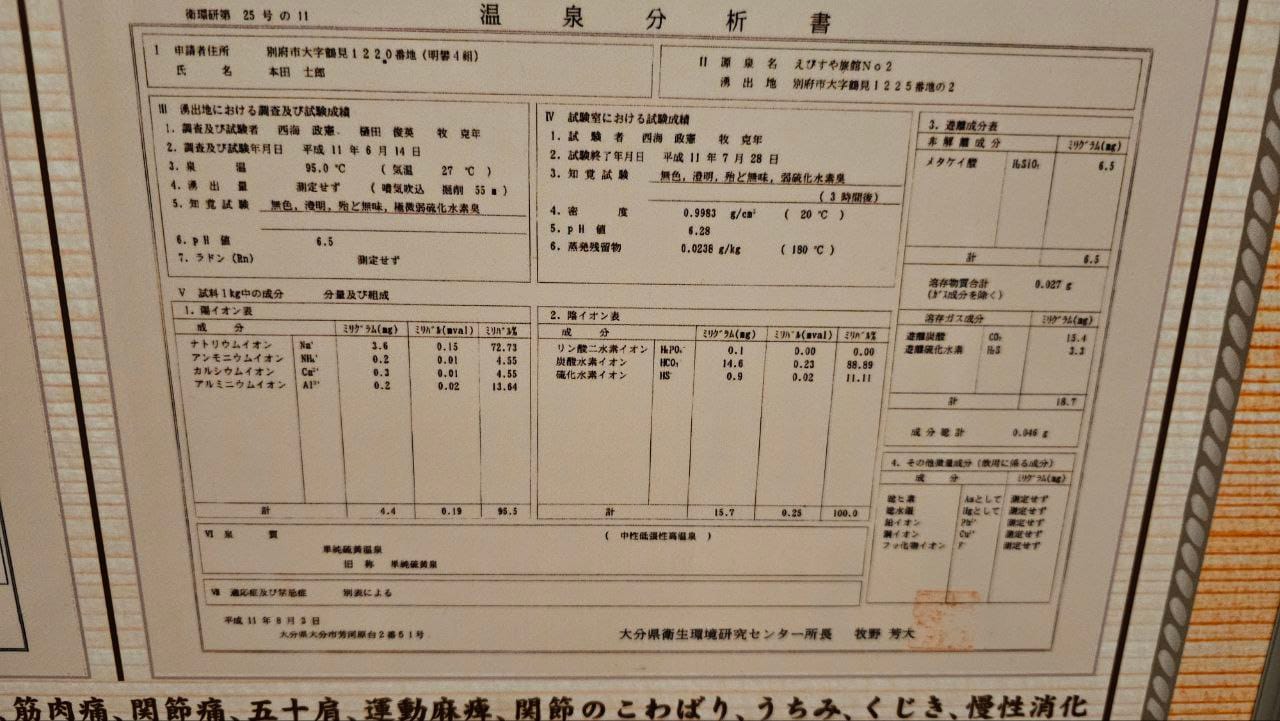 衛環研第 25 号 の 11
温泉分析書
I 申請者住所 別府市大字鶴見1220番地 (明礬4組)
氏名 本田 士郎
II 源泉名 えびすや旅館No2
湧出地 別府市大字鶴見1225番地の2
III 湧出地における調査及び試験成績
1. 調査及び試験者 西海 政憲、 樋田 俊英 牧 克年
2. 調査及び試験年月日 平成 11 年 6 月 14 日
3. 泉温 95.0 ℃ ( 気温 27 ℃ )
4. 湧出量 測定せず ( 噴気吹込 掘削 55 m )
5. 知覚試験 無色, 澄明, 殆ど無味, 極微弱硫化水素臭
6. pH 値 6.5
7. ラドン (Rn) 測定せず
IV 試験室における試験成績
1. 試験者 西海 政憲 牧 克年
2. 試験終了年月日 平成 11 年 7 月 28 日
3. 知覚試験 無色, 澄明, 殆ど無味, 弱硫化水素臭
( 3 時間後)
4. 密度 0.9983 g/cm³ ( 20 ℃ )
5. pH 値 6.28
6. 蒸発残留物 0.0238 g/kg ( 180 ℃ )
V 試料1kg中の成分 分量及び組成
1. 陽イオン表
成分 ミリグラム(mg) ミリバル(mval) ミリバル%
ナトリウムイオン Na⁺ 3.6 0.15 72.73
アンモニウムイオン NH₄⁺ 0.2 0.01 4.55
カルシウムイオン Ca²⁺ 0.3 0.01 4.55
アルミニウムイオン Al³⁺ 0.2 0.02 13.64
計 4.4 0.19 95.5
2. 陰イオン表
成分 ミリグラム(mg) ミリバル(mval) ミリバル%
リン酸二水素イオン H₂PO₄⁻ 0.1 0.00 0.00
炭酸水素イオン HCO₃⁻ 14.6 0.23 88.89
硫化水素イオン HS⁻ 0.9 0.02 11.11
計 15.7 0.25 100.0
3. 遊離成分表
非解離成分 ミリグラム(mg)
メタケイ酸 H₂SiO₃ 6.5
計 6.5
溶存物質合計 0.027 g
(ガス成分を除く)
溶存ガス成分 ミリグラム(mg)
遊離炭酸 CO₂ 15.4
遊離硫化水素 H₂S 3.3
計 18.7
成分総計 0.046 g
4. その他微量成分 (飲用に係る成分)
成分 ミリグラム(mg)
総ヒ素 Asとして 測定せず
総水銀 Hgとして 測定せず
鉛イオン Pb²⁺ 測定せず
銅イオン Cu²⁺ 測定せず
フッ化物イオン F⁻ 測定せず
VI 泉質 ( 中性低張性高温泉 )
単純硫黄温泉
旧称 単純硫黄泉
VII 適応症及び禁忌症 別表による
平成 11 年 8 月 3 日
大分県大分市芳河原台2番51号
大分県衛生環境研究センター所長 牧野 芳大
、筋肉痛、関節痛、五十肩、運動麻痺、関節のこわばり、うちみ、くじき、慢性消化